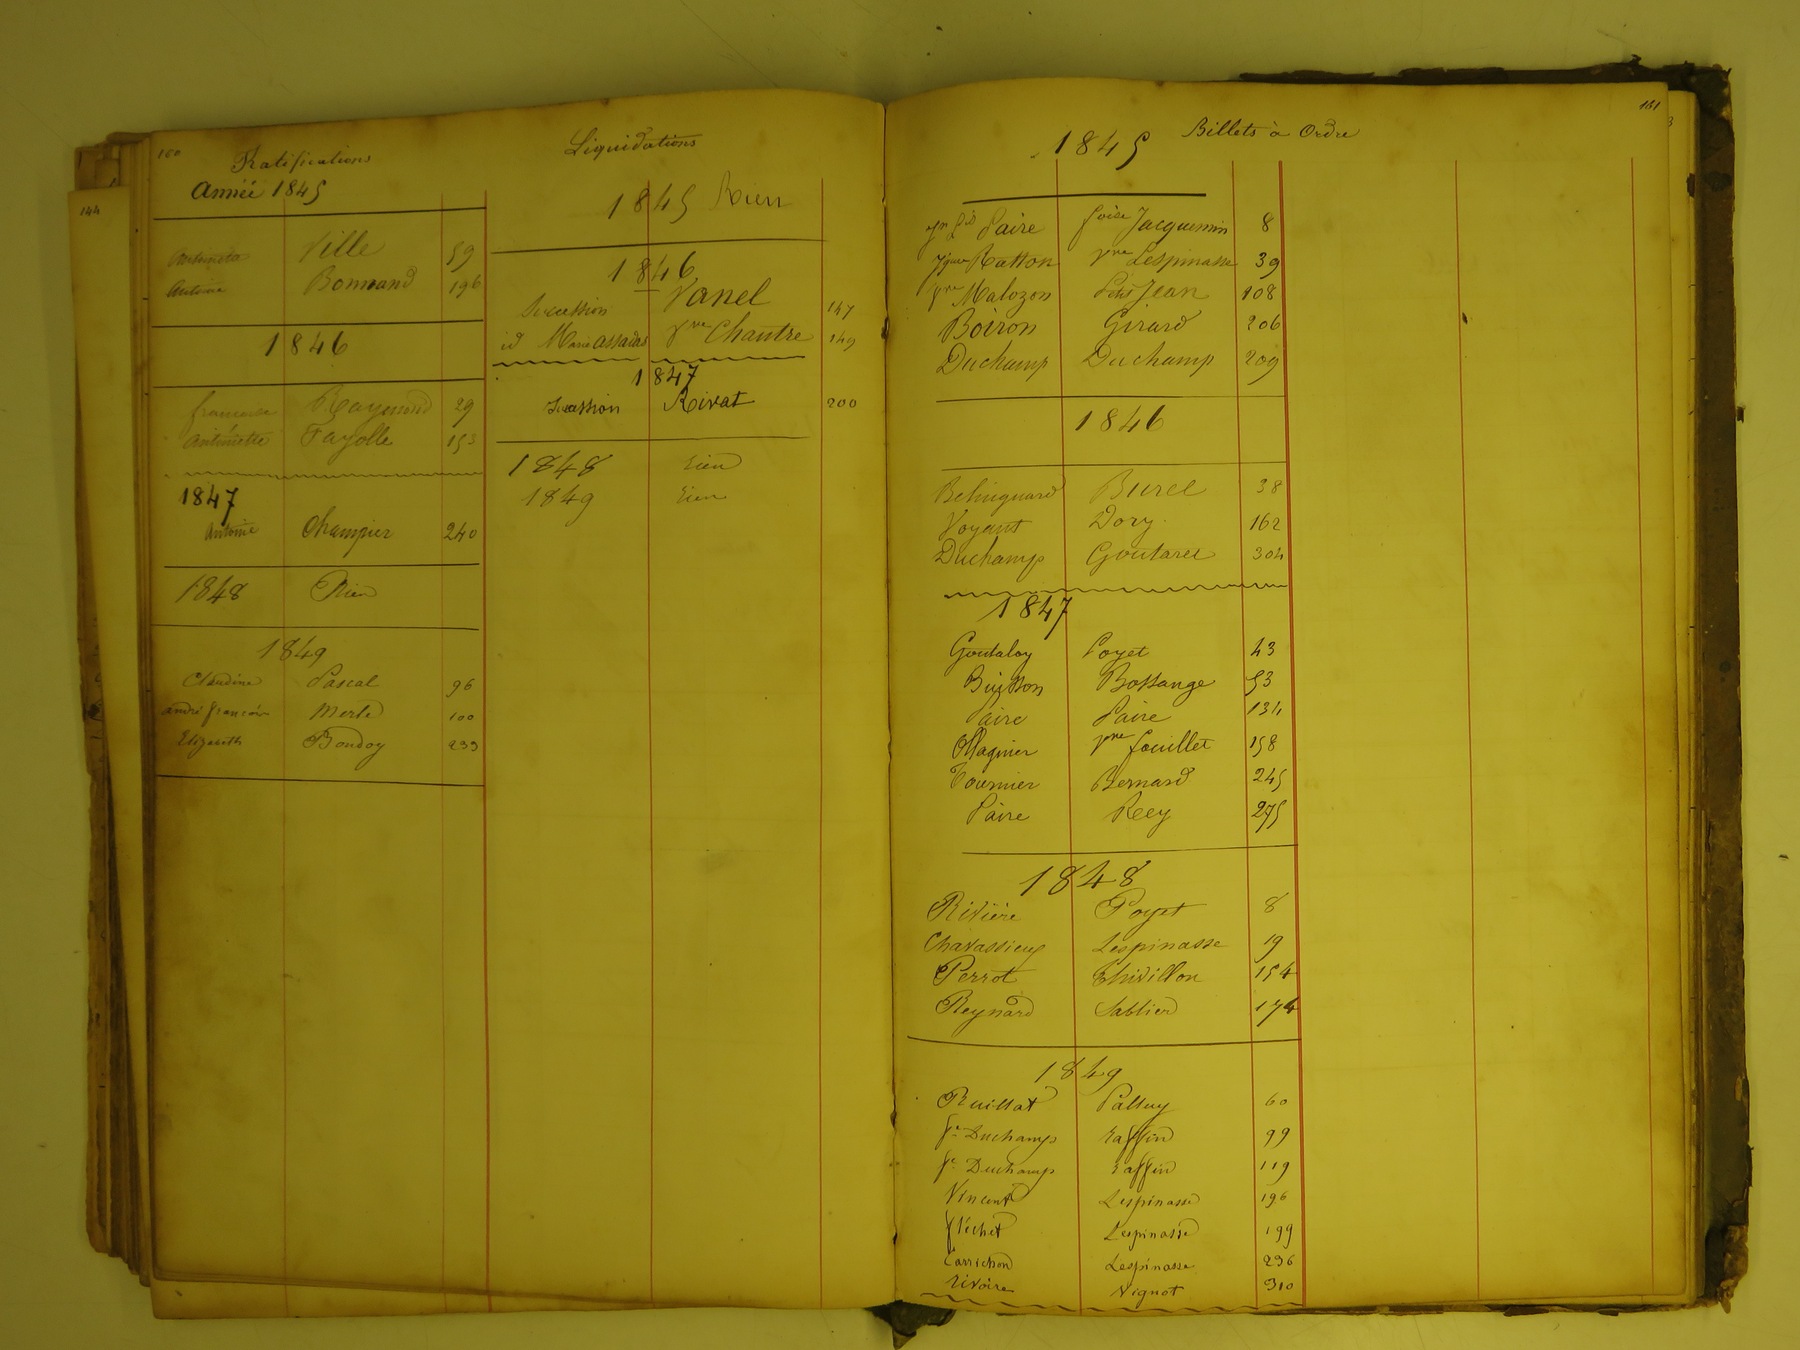 144
160
Ratifications
Année 1845
Antoinette Ville 59
Antoine Bonnand 196
1846
françoise Raymond 29
Antoinette Fayolle 153
1847
Antoine Champier 240
1848 Rien
1849
Claudine Pascal 96
andré françois Merle 100
Elizabeth Boudoy 233
Liquidations
1845 Rien
1846
Succession Vanel 147
id Marie assadas Vve Chautre 149
1847
Succession Rivat 200
1848 rien
1849 rien
161
1845 Billets à Ordre
Paire Jacquemin 8
Ratton Vve Lespinasse 39
Vve Malozon Petit Jean 108
Boiron Girard 206
Duchamp Duchamp 209
1846
Behuguard Burel 38
Voyant Dory 162
Duchamp Goutaret 304
1847
Goutaloy Poyet 43
Buisson Bossange 53
Paire Paire 134
Magnier Vve fouillet 158
Tournier Bernard 245
Paire Rey 275
1848
Rivière Poyet 8
Chavassieux Lespinasse 19
Perrot Thivillon 154
Reynard Sablier 174
1849
Ruillat Palluy 60
fs Duchamp raffin 99
fs Duchamp raffin 119
Vincent Lespinasse 196
fléchet Lespinasse 199
Carrichon Lespinasse 236
rivoire Vignot 310